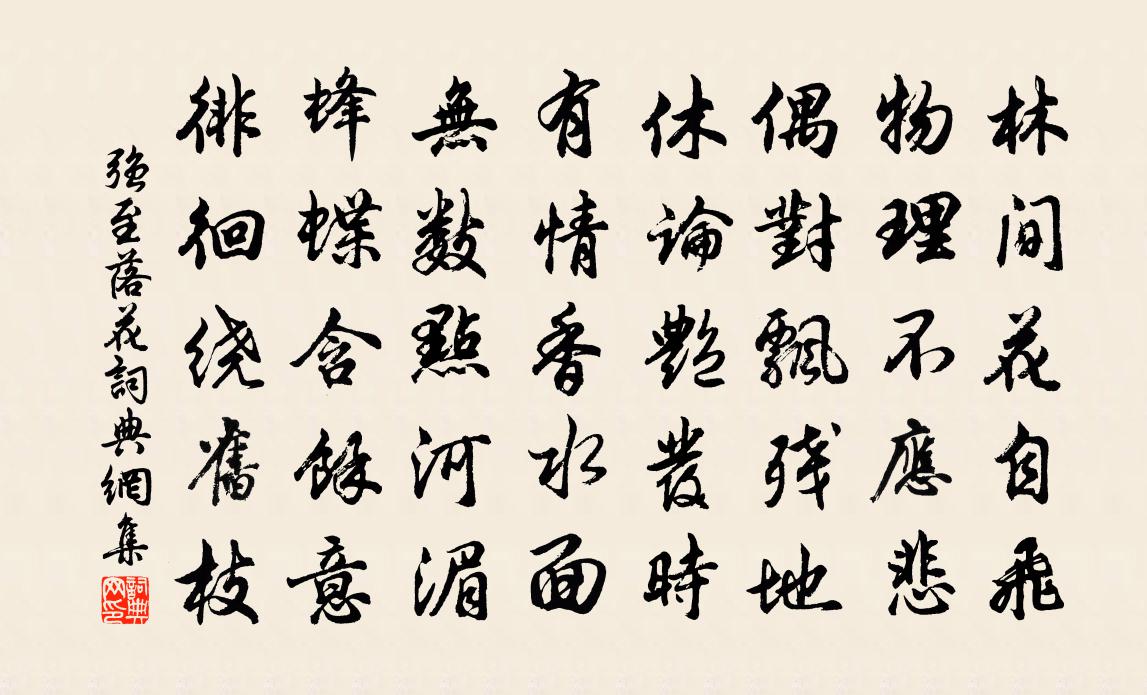 林間花自飛
物理不應悲
偶對飄残地
休論艷發時
有情香水面
無數點河湄
蜂蝶含餘意
徘徊绕舊枝
強至落花詞典網集
詞典網印